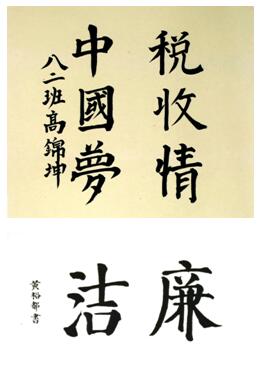 税收情
中國夢
八二班高錦坤
廉
洁
黄裕都書